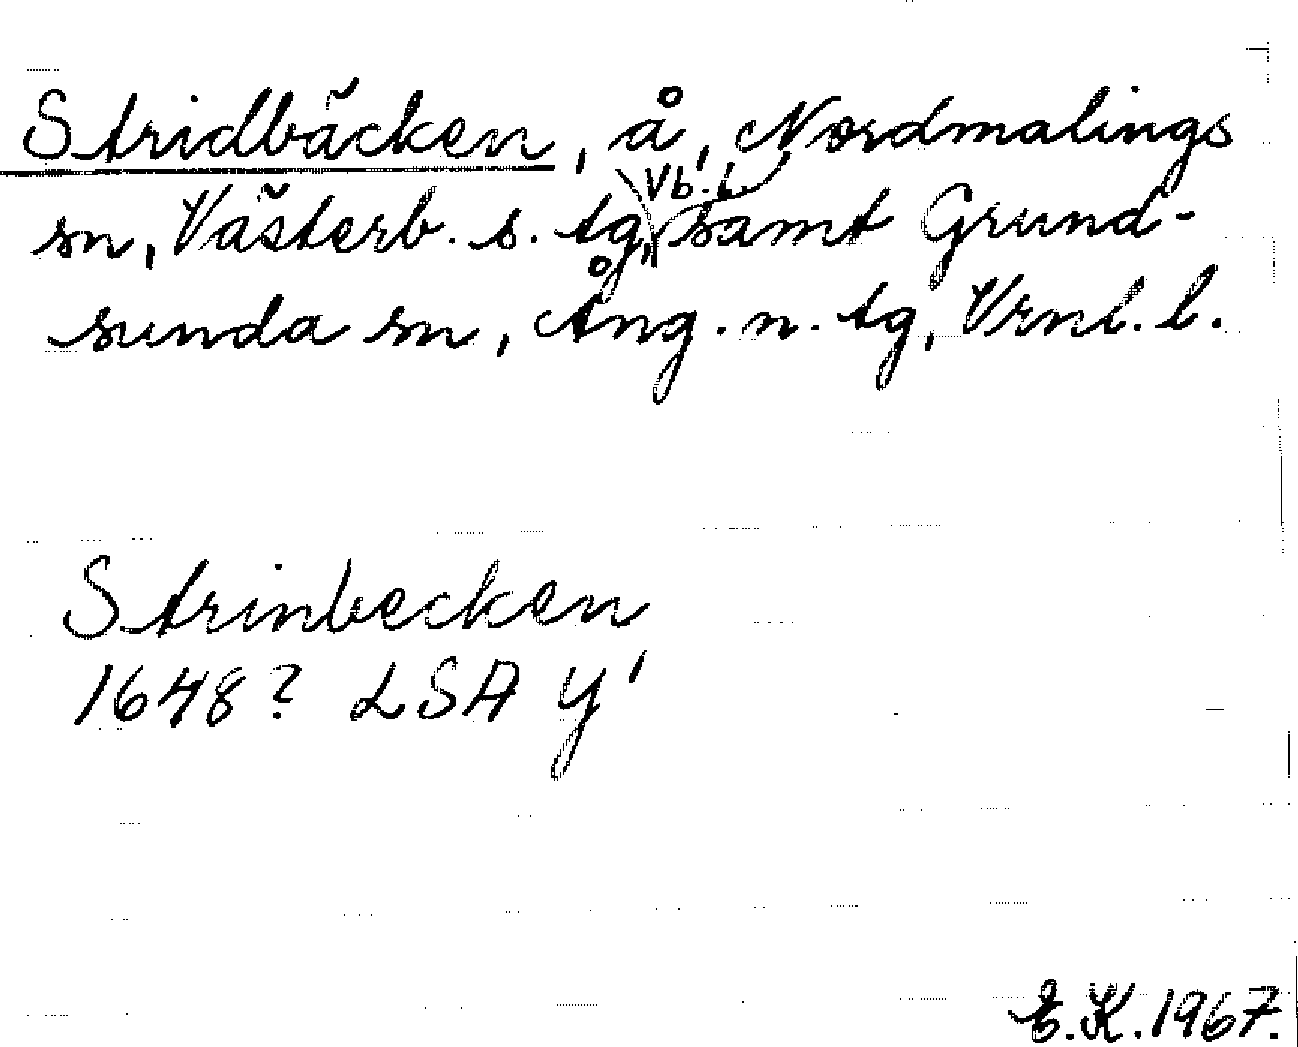 Stridbäcken, å, Nordmalings
sn, Västerb. s. tg, Vb. l. samt Grund-
sunda sn, Ång. n. tg, Vrnl. l.
Strinbecken
1648? LSA y'
E.K. 1967.